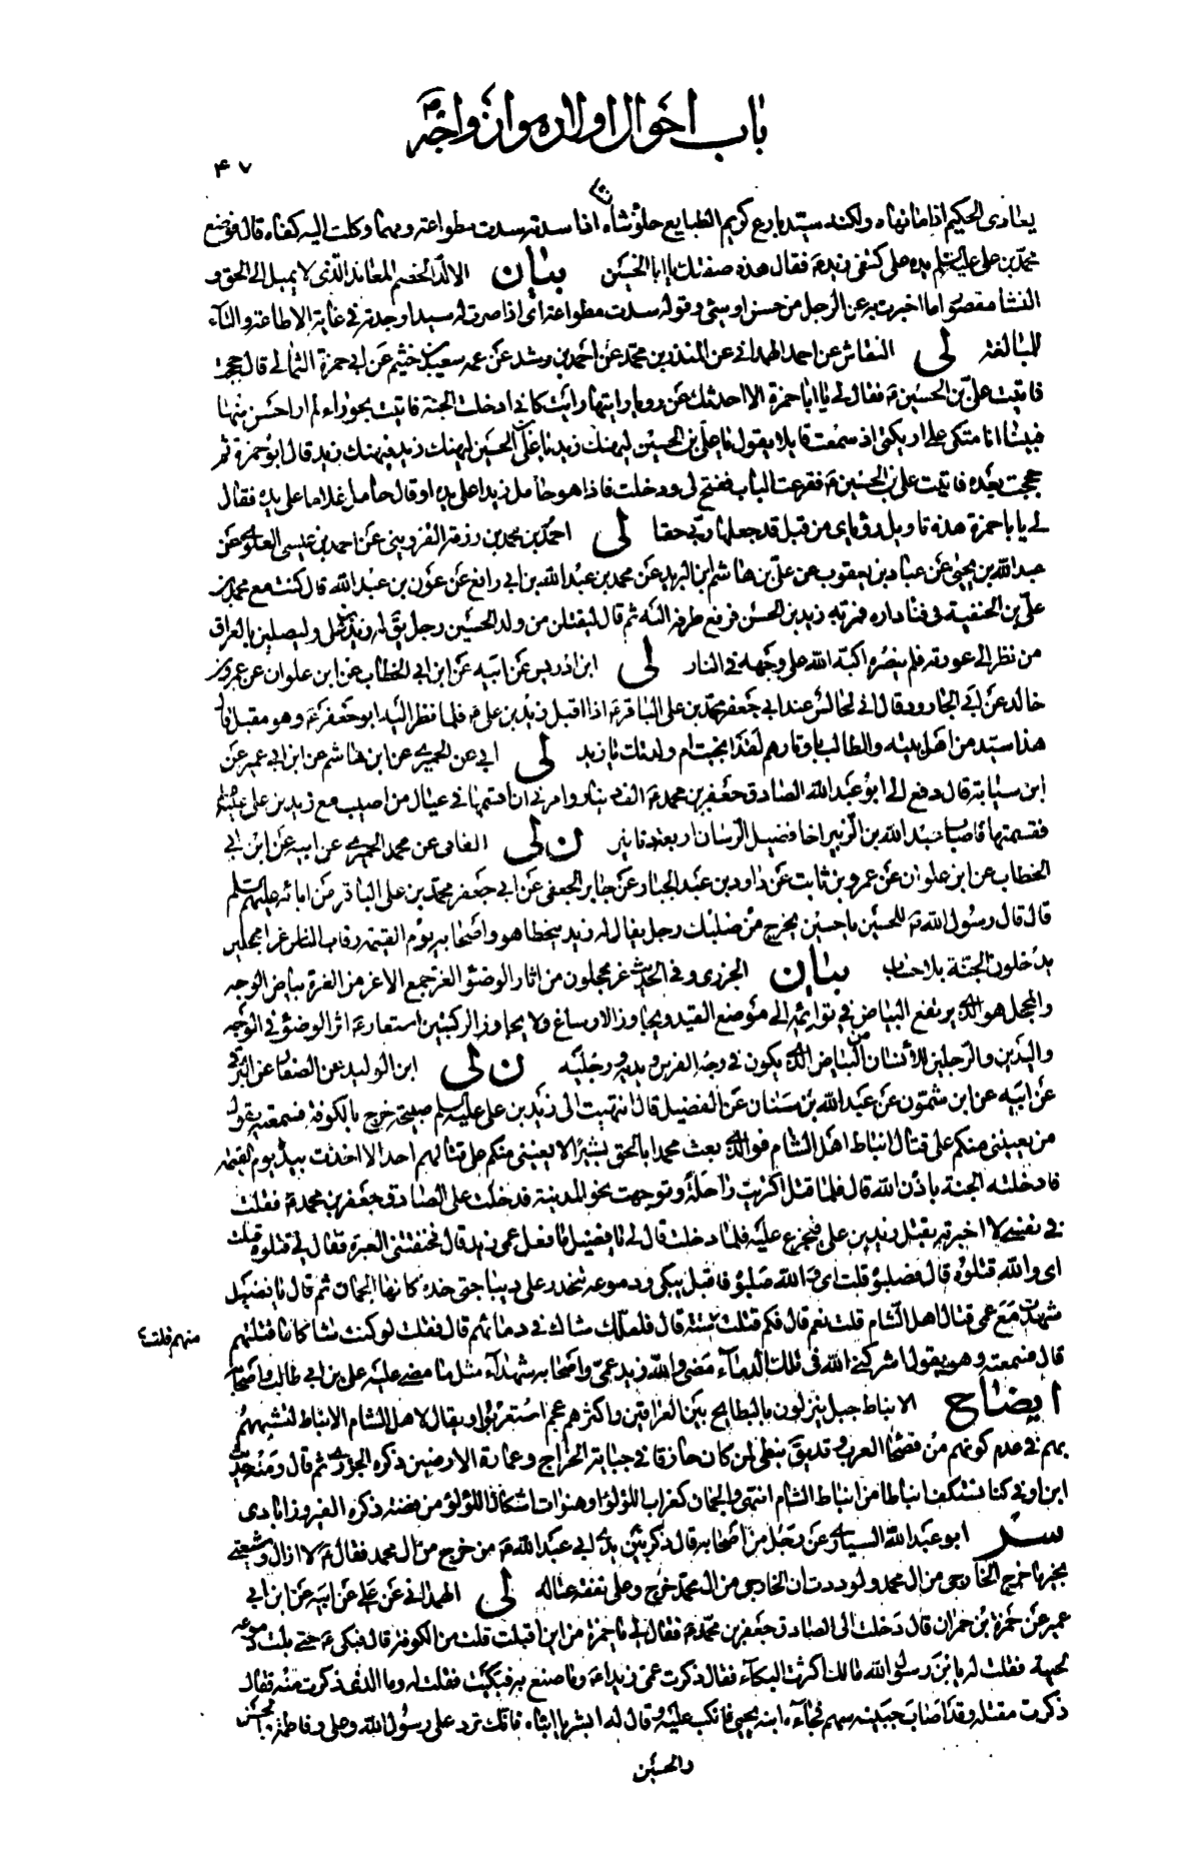 باب احوال اولاده وازواجه
۴۷
يعادى الحكيم اذا ما نهاه ولكنه سيد بارع كريم الطبايع حلو نثاه اذا سدته سدت مطواعة ومهما وكلت اليه كفاه قال فوضع
محمد بن على عليه السلم يده على كتفى زيد ع فقال هذه صفتك يا ابا الحسين بيان الالد الخصم المعاند الذى لا يميل الى الحق و
النثا مقصورا ما اخبرت به عن الرجل من حسن او سيئ وقوله سدت مطواعة اى اذا صرت له سيدا وجدته فى غاية الاطاعة والتاء
للمبالغة لى النقاش عن احمد الهمدانى عن المنذر بن محمد عن احمد بن رشد عن عمه سعيد بن خثيم عن ابى حمزة الثمالى قال حججت
فاتيت على بن الحسين ع فقال لى يا ابا حمزة الا احدثك عن رويا رايتها رايت كانى ادخلت الجنة فاتيت بحوراء لم ار احسن منها
فبينا انا متكى على اريكتى اذ سمعت قايلا يقول يا على بن الحسين ليهنك زيد يا على بن الحسين ليهنك زيد فيهنك زيد قال ابو حمزة ثم
حججت بعده فاتيت على بن الحسين ع فقرعت الباب ففتح لى ودخلت فاذا هو حامل زيدا على يده او قال حامل غلاما على يده فقال
لى يا با حمزة هذه تاويل رؤياى من قبل قد جعلها ربى حقا لى احمد بن محمد بن رزمة القزوينى عن احمد بن عيسى العلوى عن
عبد الله بن يحيى عن عباد بن يعقوب عن على بن هاشم ابن البريد عن محمد بن عبد الله بن ابى رافع عن عون بن عبد الله قال كنت مع محمد بن
على بن الحنفية فى فناء داره فمر به زيد بن الحسن فرفع طرفه اليه ثم قال ليقتلن من ولد الحسين رجل يقال له زيد بن على وليصلبن بالعراق
من نظر الى عورته فلم ينصره اكبه الله على وجهه فى النار لى ابن ادريس عن ابيه عن ابن ابى الخطاب عن ابن علوان عن عمرو بن
خالد عن ابى الجارود قال انى لجالس عند ابى جعفر محمد بن على الباقر ع اذا اقبل زيد بن على ع فلما نظر اليه ابو جعفر ع وهو مقبل قال
هذا سيد من اهل بيته والطالب باوتارهم لقد انجبت ام ولدتك يا زيد لى ابى عن الحميرى عن ابن هاشم عن ابن ابى عمير عن
ابن سيابة قال دفع الى ابو عبد الله الصادق جعفر بن محمد ع الف دينار وامرنى ان اقسمها فى عيال من اصيب مع زيد بن على عليهما
فقسمتها فاصاب عبد الله بن الزبير اخا فضيل الرسان اربعة دنانير ن لى الفامى عن محمد الحميرى عن ابيه عن ابن ابى
الخطاب عن ابن علوان عن عمرو بن ثابت عن داود بن عبد الجبار عن جابر الجعفى عن ابى جعفر محمد بن على الباقر عن ابائه عليهم السلم
قال قال رسول الله ص للحسين يا حسين يخرج من صلبك رجل يقال له زيد يتخطا هو واصحابه يوم القيمة رقاب الناس غرا محجلين
يدخلون الجنة بلا حساب بيان الجزرى وفى الحديث غر محجلون من اثار الوضؤ الغر جمع الاغر من الغرة بياض الوجه
والمحجل هو الذى يرتفع البياض فى قوائمه الى موضع القيد ويجاوز الارساغ ولا يجاوز الركبتين استعار ع اثر الوضؤ فى الوجه
واليدين والرجلين للانسان من البياض الذى يكون فى وجه الفرس ويديه ورجليه ن لى ابن الوليد عن الصفار عن البرقى
عن ابيه عن ابن شمون عن عبد الله بن سنان عن الفضيل قال انتهيت الى زيد بن على عليه السلم صبيحة خرج بالكوفة فسمعته يقول
من يعيننى منكم على قتال انباط اهل الشام فوالذى بعث محمدا بالحق بشيرا لا يعيننى منكم على قتالهم احد الا اخذت بيده يوم القيمة
فادخلته الجنة باذن الله قال فلما قتل اكتريت راحلة وتوجهت نحو المدينة فدخلت على الصادق جعفر بن محمد ع فقلت
فى نفسى لا اخبرته بقتل زيد بن على فيجزع عليه فلما دخلت قال لى يا فضيل ما فعل عمى زيد قال فخنقتنى العبرة فقال لى قتلوه قلت
اى والله قتلوه قال فصلبوه قلت اى والله صلبوه فاقبل يبكى ودموعه تنحدر على ديباجتى خده كانها الجمان ثم قال يا فضيل
شهدت مع عمى قتال اهل الشام قلت نعم قال فكم قتلت منهم قلت ستة قال فلعلك شاك فى دمائهم قال فقلت لو كنت شاكا ما قتلتهم
منهم قلت
قال فسمعته وهو يقول اشركنى الله فى تلك الدماء مضى والله زيد عمى واصحابه شهداء مثل ما مضى عليه على بن ابى طالب واصحابه
ايضاح الانباط جيل ينزلون بالبطايح بين العراقين واكثرهم عجم استعربوا ويقال لاهل الشام الانباط لتشبههم
بهم فى عدم كونهم من فصحاء العرب وقد يطلق نبطى لمن كان حاذقا فى جباية الخراج وعمارة الارضين ذكره الجزرى ثم قال ومنه حديث
ابن ابى اوفى كنا نستلف انباطا من انباط الشام انتهى والجمان كغراب اللؤلؤ او هنوات اشكال اللؤلؤ من فضة ذكره الفيروزابادى
سر ابو عبد الله السيارى عن رجل من اصحابه قال ذكر بين يدى ابى عبد الله ع من خرج من ال محمد فقال ع لا ازال وشيعتى
بخير ما خرج الخارجى من ال محمد ولوددت ان الخارجى من ال محمد خرج وعلى نفقة عياله لى الهمدانى عن على عن ابيه عن ابن ابى
عمير عن حمزة بن حمران قال دخلت الى الصادق جعفر بن محمد ع فقال لى يا حمزة من اين اقبلت قلت من الكوفة قال فبكى ع حتى بلت دموعه
لحيته فقلت له يا بن رسول الله مالك اكثرت البكاء فقال ذكرت عمى زيدا ع وما صنع به فبكيت فقلت له وما الذى ذكرت منه فقال
ذكرت مقتله وقد اصاب جبينه سهم فجاءه ابنه يحيى فانكب عليه وقال له ابشر يا ابتاه فانك ترد على رسول الله وعلى وفاطمة والحسن
والحسين